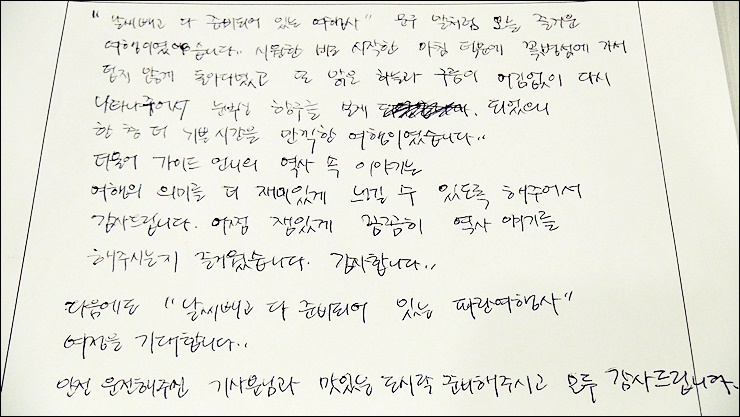 "날씨빼고 다 준비되어 있는 여행사" 문구 말처럼 오늘 즐거운
여행이였습니다.. 시원한 비로 시작한 아침 덕분에 꽃병성에 가서
덥지 않게 돌아다녔고 또 맑은 하늘과 구름이 어김없이 다시
나타나주어서 눈부신 항구를 보게 되었으니
한 층 더 기쁜 시간을 만끽한 여행이였습니다..
더불어 가이드 언니의 역사 속 이야기는
여행의 의미를 더 재미있게 느낄 수 있도록 해주어서
감사드립니다. 어쩜 잼있게 꼼꼼히 역사 얘기를
해주시는지 즐거웠습니다. 감사합니다..
다음에도 "날씨빼고 다 준비되어 있는 파란여행사"
여정을 기대합니다..
안전 운전해주신 기사분님과 맛있는 도시락 준비해주시고 모두 감사드립니다.